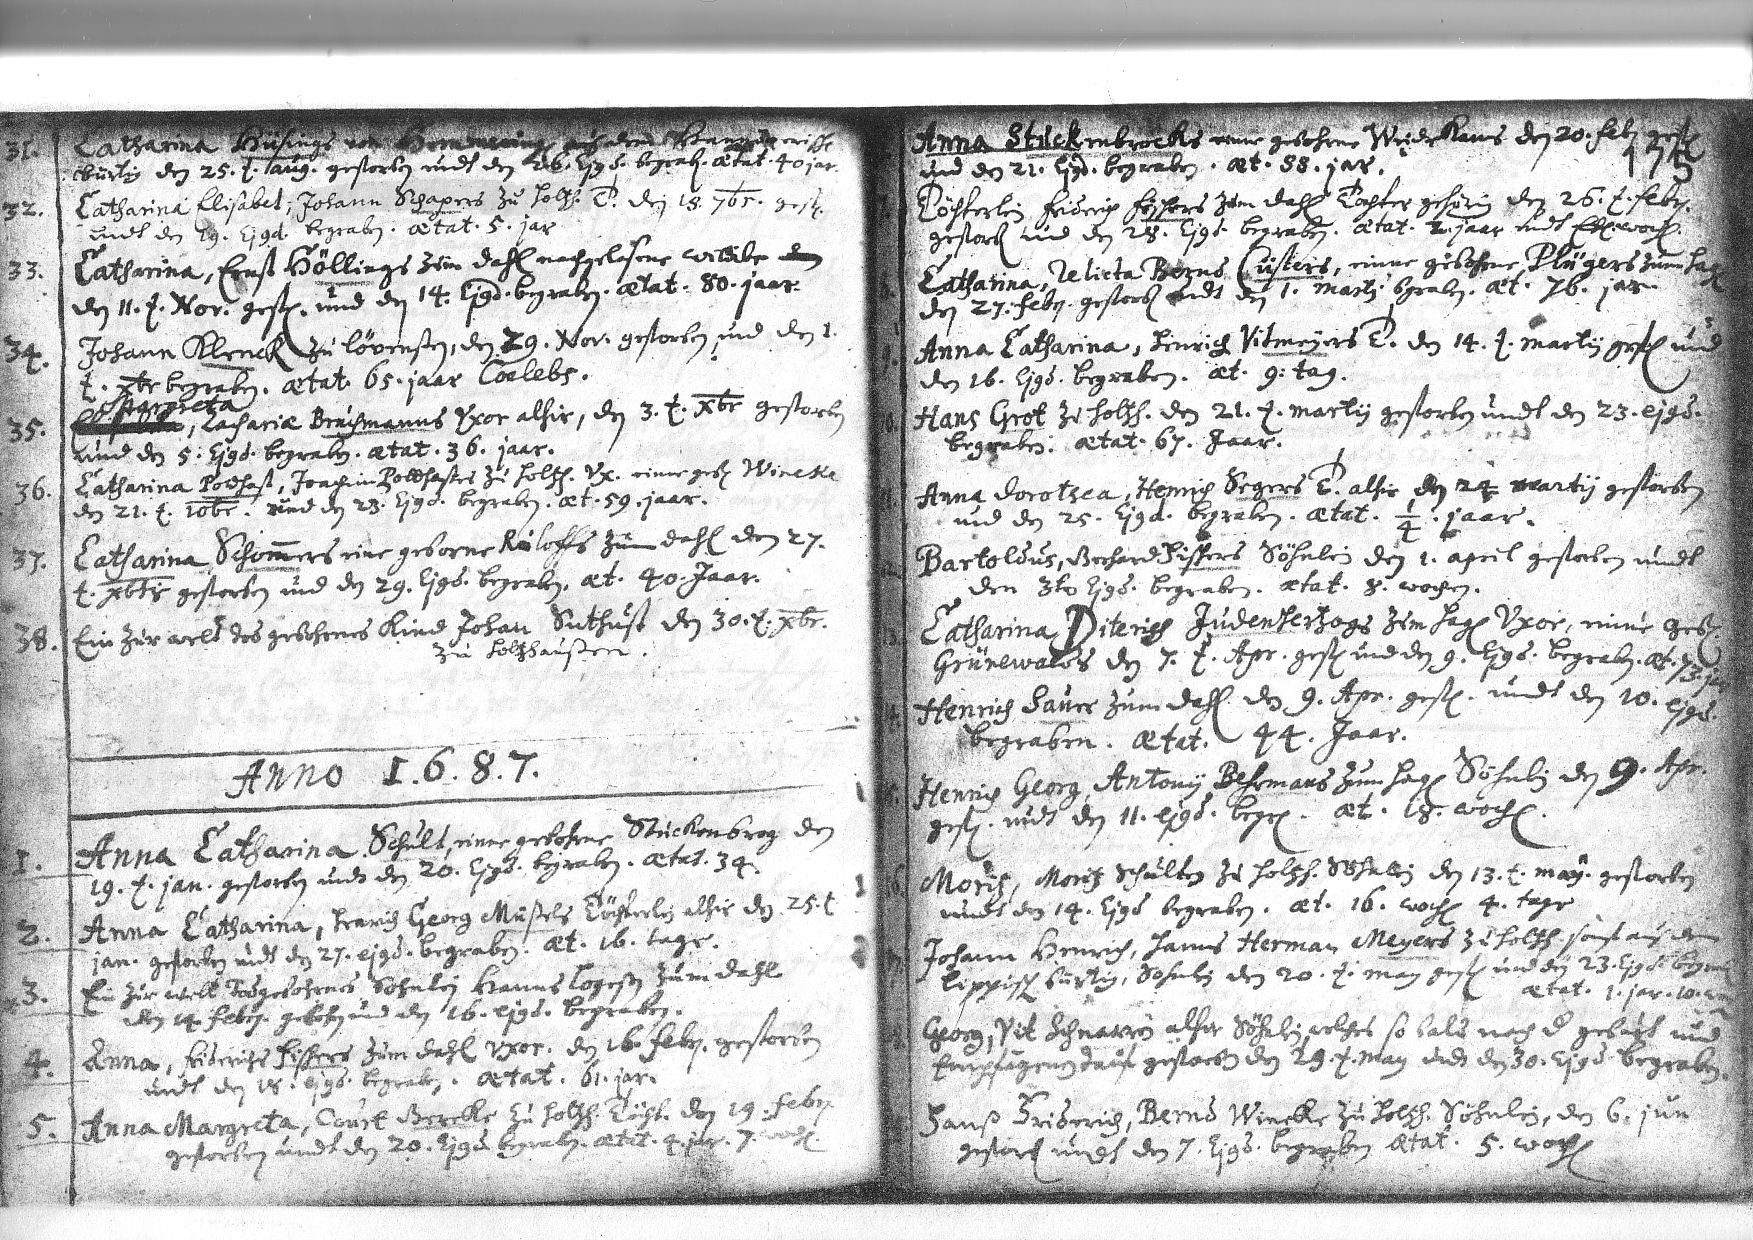 31. Catharina Hüsings von
bürtig den 25. t. aug. gestorben undt den 26. Ejusd. begrab. ætat. 40 jar.
32. Catharina Elisabet, Johann Schapers zu Holtzh. T. den 18. 7br. gest.
undt den 19. Ejusd. begraben. ætat. 5. jar
33. Catharina, Ernst Höllings zum Dahl nachgelasene wittibe
den 11. t. Nov. gest. und den 14. Ejusd. begraben. ætat. 80. jaar.
34. Johann Klenck zu Lövensen, den 29. Nov. gestorben und den 1.
t. xbr begraben. ætat. 65. jaar Cœlebs.
Margreta
35. , Zachariæ Bruchmanns Vxor alhir, den 3. t. xbr gestorben
und den 5. Ejusd. begraben. ætat. 36. jaar.
36. Catharina Podhast, Joachim Podhastes zu Holtzh. Vx. eine geb. Wineke
den 21. t. 10br. und den 23. Ejusd. begraben. æt. 59. jaar.
37. Catharina Schommers eine geborne Ruloffs zum Dahl den 27.
t. xbris gestorben und den 29. Ejusd. begraben. æt. 40. Jaar.
38. Ein zur welt dot gebohrenes Kind Johan Suthust den 30. t. xbr.
zu Holtzhausen.
ANNO 1.6.8.7.
1. Anna Catharina Schült, eine gebohrne Stückenbrog den
19. t. jan. gestorben undt den 20. Ejusd. begraben. ætat. 34.
2. Anna Catharina, Henrich Georg Müssels Töchterlin alhir den 25. t
jan. gestorben undt den 27. ejusd. begraben. æt. 16. tage.
3. Ein zur welt Todgebohrenes Söhnlein Hanns zum Dahl
den 14. febr. gebohren und den 16. ejusd. begraben.
4. Anna, friderichs Fischers zum Dahl Vxor. den 16. febr. gestorben
undt den 18. ejusd. begraben. ætat. 61. jar.
5. Anna Margreta, Court Gereke zu Holtzh. Töcht. den 19. febr.
gestorben undt den 20. Ejusd. begraben. ætat. 4. jar. 7. woch.
175
Anna Stückenbrocks eine gebohrne den 20. feb. gest.
und den 21. Ejusd. begraben. æt. 88. jar.
Töchterlein friderich Fischers zum Dahl Tochter gehörig den 26. t. febr.
gestorb. und den 28. Ejusd. begraben. ætat. 2. jaar undt woch.
Catharina, Relicta Bernd Custers, eine gebohrne Plügers zum Hag.
den 27. febr. gestorb. undt den 1. Martij. begraben. æt. 76. jar.
Anna Catharina, Henrich Vitmeyers T. den 14. t. martij gest. und
den 16. Ejusd. begraben. æt. 9. tag.
Hans Grot zu Holtzh. den 21. t. martij gestorben undt den 23. ejusd.
begraben. ætat. 67. Jaar.
Anna Dorothea, Henrich Segers T. alhir den 24 martij gestorben
und den 25. Ejusd. begraben. ætat. 1/4. jaar.
Bartoldus, Gerhard Fischers Söhnlein den 1. april gestorben undt
den 3t Ejusd. begraben. ætat. 8. wochen.
Catharina, Diterich Judenhertzogs zum Hag. Vxor, eine geb.
Grünewalds den 7. t. Apr. gest. und den 9. Ejusd. begraben. æt. 73. jar
Henrich Sauer zum Dahl den 9. Apr. gest. undt den 10. ejusd.
begraben. ætat. 44. Jaar.
Henrich Georg, Antony Behrmans zum Hag. Söhnlein den 9. Apr.
gest. undt den 11. ejusd. begr. æt. 18. woch.
Moritz, Moritz Schülten zu Holtzh. Söhnlein den 13. t. may. gestorben
undt den 14. Ejusd. begraben. æt. 16. woch 4. tage
Johann Henrich, Hanns Herman Meyers zu Holtzh. sonst aus dem
Lippisch. bürtig, Söhnlein den 20. t. may gest. und den 23. Ejusd. begrab.
ætat. 1. jar. 10.
Georg, Vit Schnarren alhir Söhnlein, welches so bald nach d. geburt und
Empfangenen Tauff gestorben den 29. t. may undt den 30. Ejusd. begraben.
Hanß Friderich, Bernd Wineke zu Holtzh. Söhnlein, den 6. jun
gestorb. undt den 7. Ejusd. begraben ætat. 5. woch.